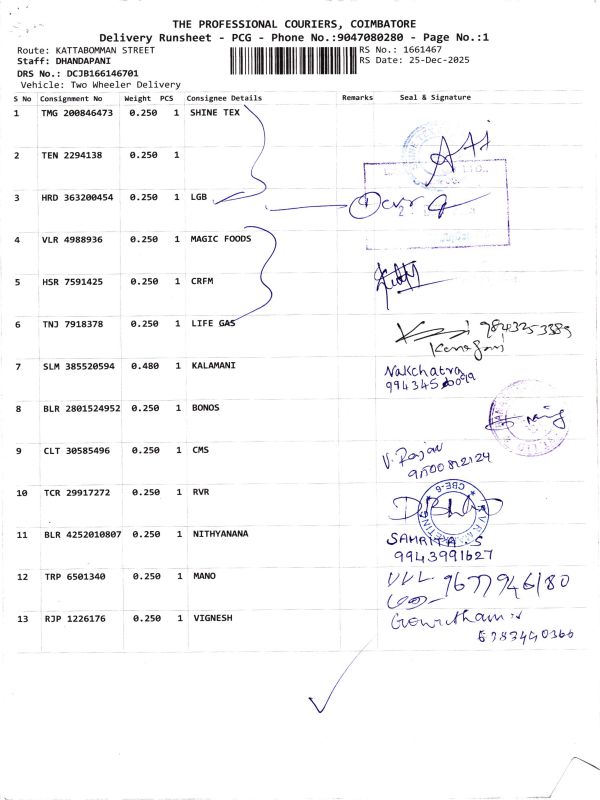 THE PROFESSIONAL COURIERS, COIMBATORE
Delivery Runsheet - PCG - Phone No.:9047080280 - Page No.:1
Route: KATTABOMMAN STREET RS No.: 1661467
Staff: DHANDAPANI RS Date: 25-Dec-2025
DRS No.: DCJB166146701
Vehicle: Two Wheeler Delivery
S No Consignment No Weight PCS Consignee Details Remarks Seal & Signature
1 TMG 200846473 0.250 1 SHINE TEX
2 TEN 2294138 0.250 1
3 HRD 363200454 0.250 1 LGB
4 VLR 4988936 0.250 1 MAGIC FOODS
5 HSR 7591425 0.250 1 CRFM
6 TNJ 7918378 0.250 1 LIFE GAS 9843253389
7 SLM 385520594 0.480 1 KALAMANI Nakchatra
8 BLR 2801524952 0.250 1 BONOS
9 CLT 30585496 0.250 1 CMS V. Rajan
10 TCR 29917272 0.250 1 RVR CBE-6
11 BLR 4252010807 0.250 1 NITHYANANA
9943991627
12 TRP 6501340 0.250 1 MANO 9677946180
13 RJP 1226176 0.250 1 VIGNESH